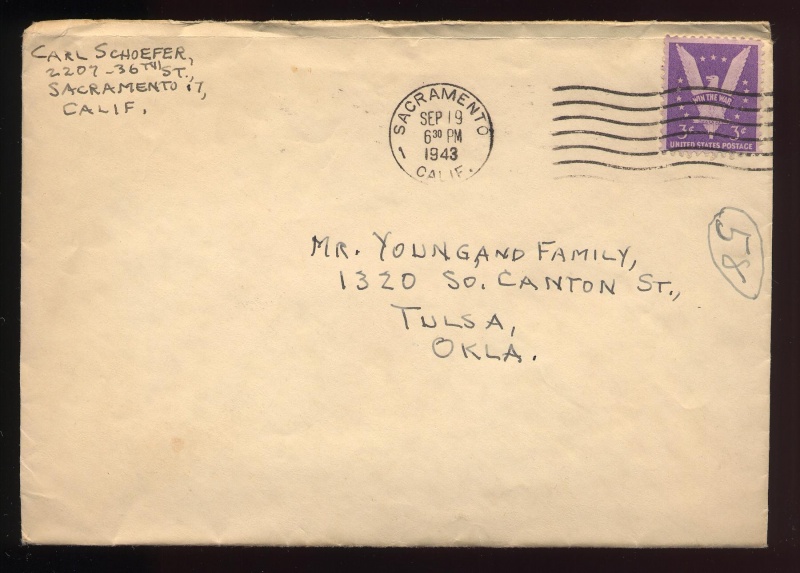 CARL SCHOEFER,
2207-36TH ST.,
SACRAMENTO 17,
CALIF.
SACRAMENTO
1
SEP 19
6 30 PM
1943
CALIF.
WIN THE WAR
3¢ 3¢
UNITED STATES POSTAGE
58
MR. YOUNG AND FAMILY,
1320 SO. CANTON ST.,
TULSA,
OKLA.